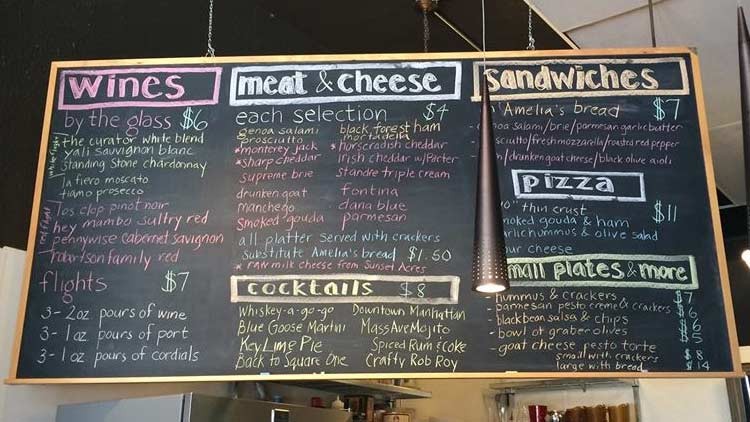 wines
by the glass $6
white flight
the curator white blend
yali sauvignon blanc
standing stone chardonnay
la fiero moscato
tiamo prosecco
red flight
los clop pinot noir
hey mambo sultry red
pennywise cabernet sauvignon
robertson family red
flights $7
3-2oz pours of wine
3-1oz pours of port
3-1oz pours of cordials
meat & cheese
each selection $4
genoa salami black forest ham
prosciutto mortadella
*monterey jack *horseradish cheddar
*sharp cheddar Irish cheddar w/Porter
supreme brie standre triple cream
drunken goat fontina
manchego dana blue
smoked gouda parmesan
all platter served with crackers
Substitute Amelia's bread $1.50
* RAW milk cheese from Sunset Acres
cocktails $8
Whiskey-a-go-go Downtown Manhattan
Blue Goose Martini Mass Ave Mojito
Key Lime Pie Spiced Rum & Coke
Back to Square One Crafty Rob Roy
sandwiches
Amelia's bread $7
genoa salami/brie/parmesan garlic butter
/fresh mozzarella/roasted red pepper
/drunken goat cheese/black olive aioli
pizza
thin crust $11
smoked gouda & ham
garlic hummus & olive salad
cheese
small plates & more
- hummus & crackers $7
- parmesan pesto creme & crackers $6
- black bean salsa & chips $6
- bowl of graber olives $5
- goat cheese pesto torte
small with crackers $8
large with bread $14